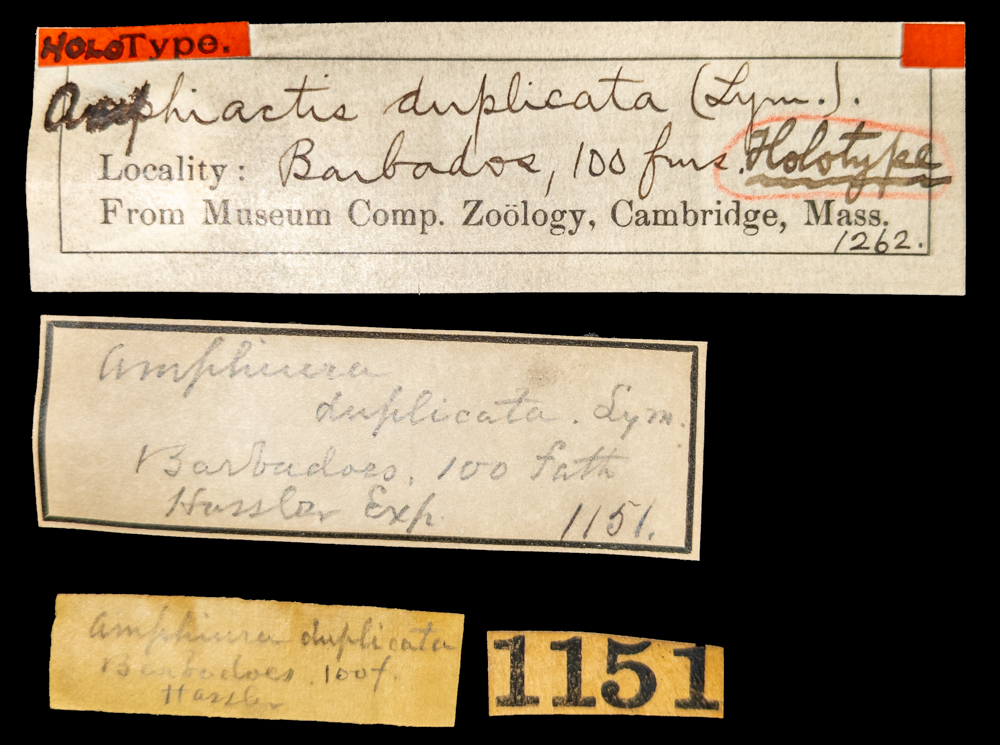 HOLOType.
Amphiactis duplicata (Lym.).
Locality: Barbados, 100 fms. Holotype
From Museum Comp. Zoölogy, Cambridge, Mass.
1262.
Amphiura
duplicata. Lym.
Barbadoes. 100 fath
Hassler Exp.
1151.
Amphiura duplicata
Barbadoes. 100f.
Hassler
1151